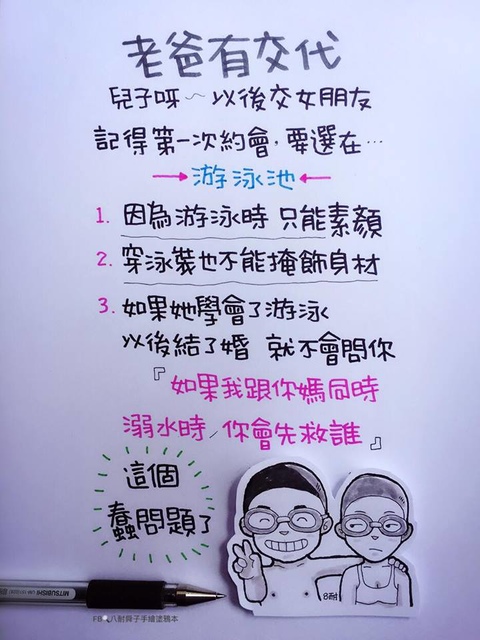 老爸有交代
兒子呀～以後交女朋友
記得第一次約會，要選在…
→游泳池←
1. 因為游泳時 只能素顏
2. 穿泳裝也不能掩飾身材
3. 如果她學會了游泳
以後結了婚 就不會問你
『如果我跟你媽同時
溺水時，你會先救誰』
這個
蠢問題了
8耐
MITSUBISHI
FB 八耐舜子手繪塗鴉本